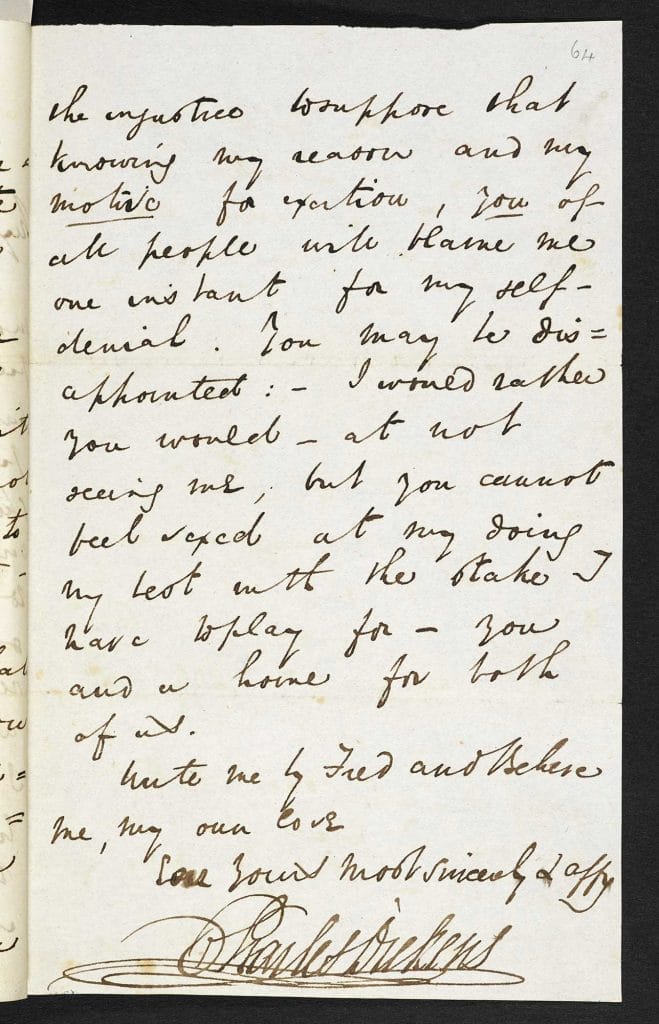 64
the injustice to suppose that
knowing my reason and my
motive for exertion, you of
all people will blame me
one instant for my self-
denial. You may be dis=
appointed:- I would rather
you would - at not
seeing me, but you cannot
feel vexed at my doing
my best with the stake I
have to play for - you
and a home for both
of us.
Write me by Fred and Believe
me, my own love
Ever Yours most sincerely & affy
Charles Dickens